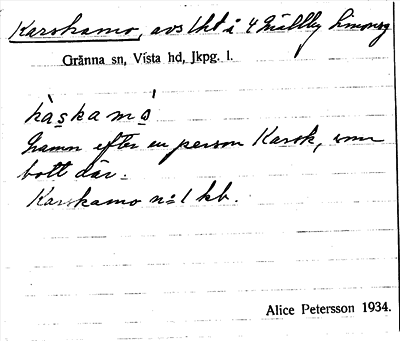 Karskamo, avs lht i 4 Mällby Simonsg
Gränna sn, Vista hd, Jkpg. l.
kàskamó
Namn efter en person Karsk, som
bott där.
Karskamo n:o 1 kb.
Alice Petersson 1934.